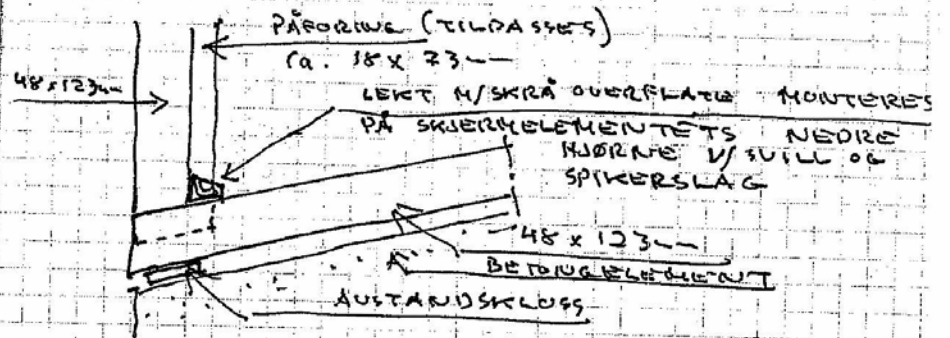 PÅFORING (TILPASSES)
ca. 18 x 73 mm
48 x 123 mm
LEKT M/SKRÅ OVERFLATE MONTERES
PÅ SKJERMELEMENTETS NEDRE
HJØRNE V/ SVILL OG
SPIKERSLAG
48 x 123 mm
BETONGELEMENT
AVSTANDSKLOSS